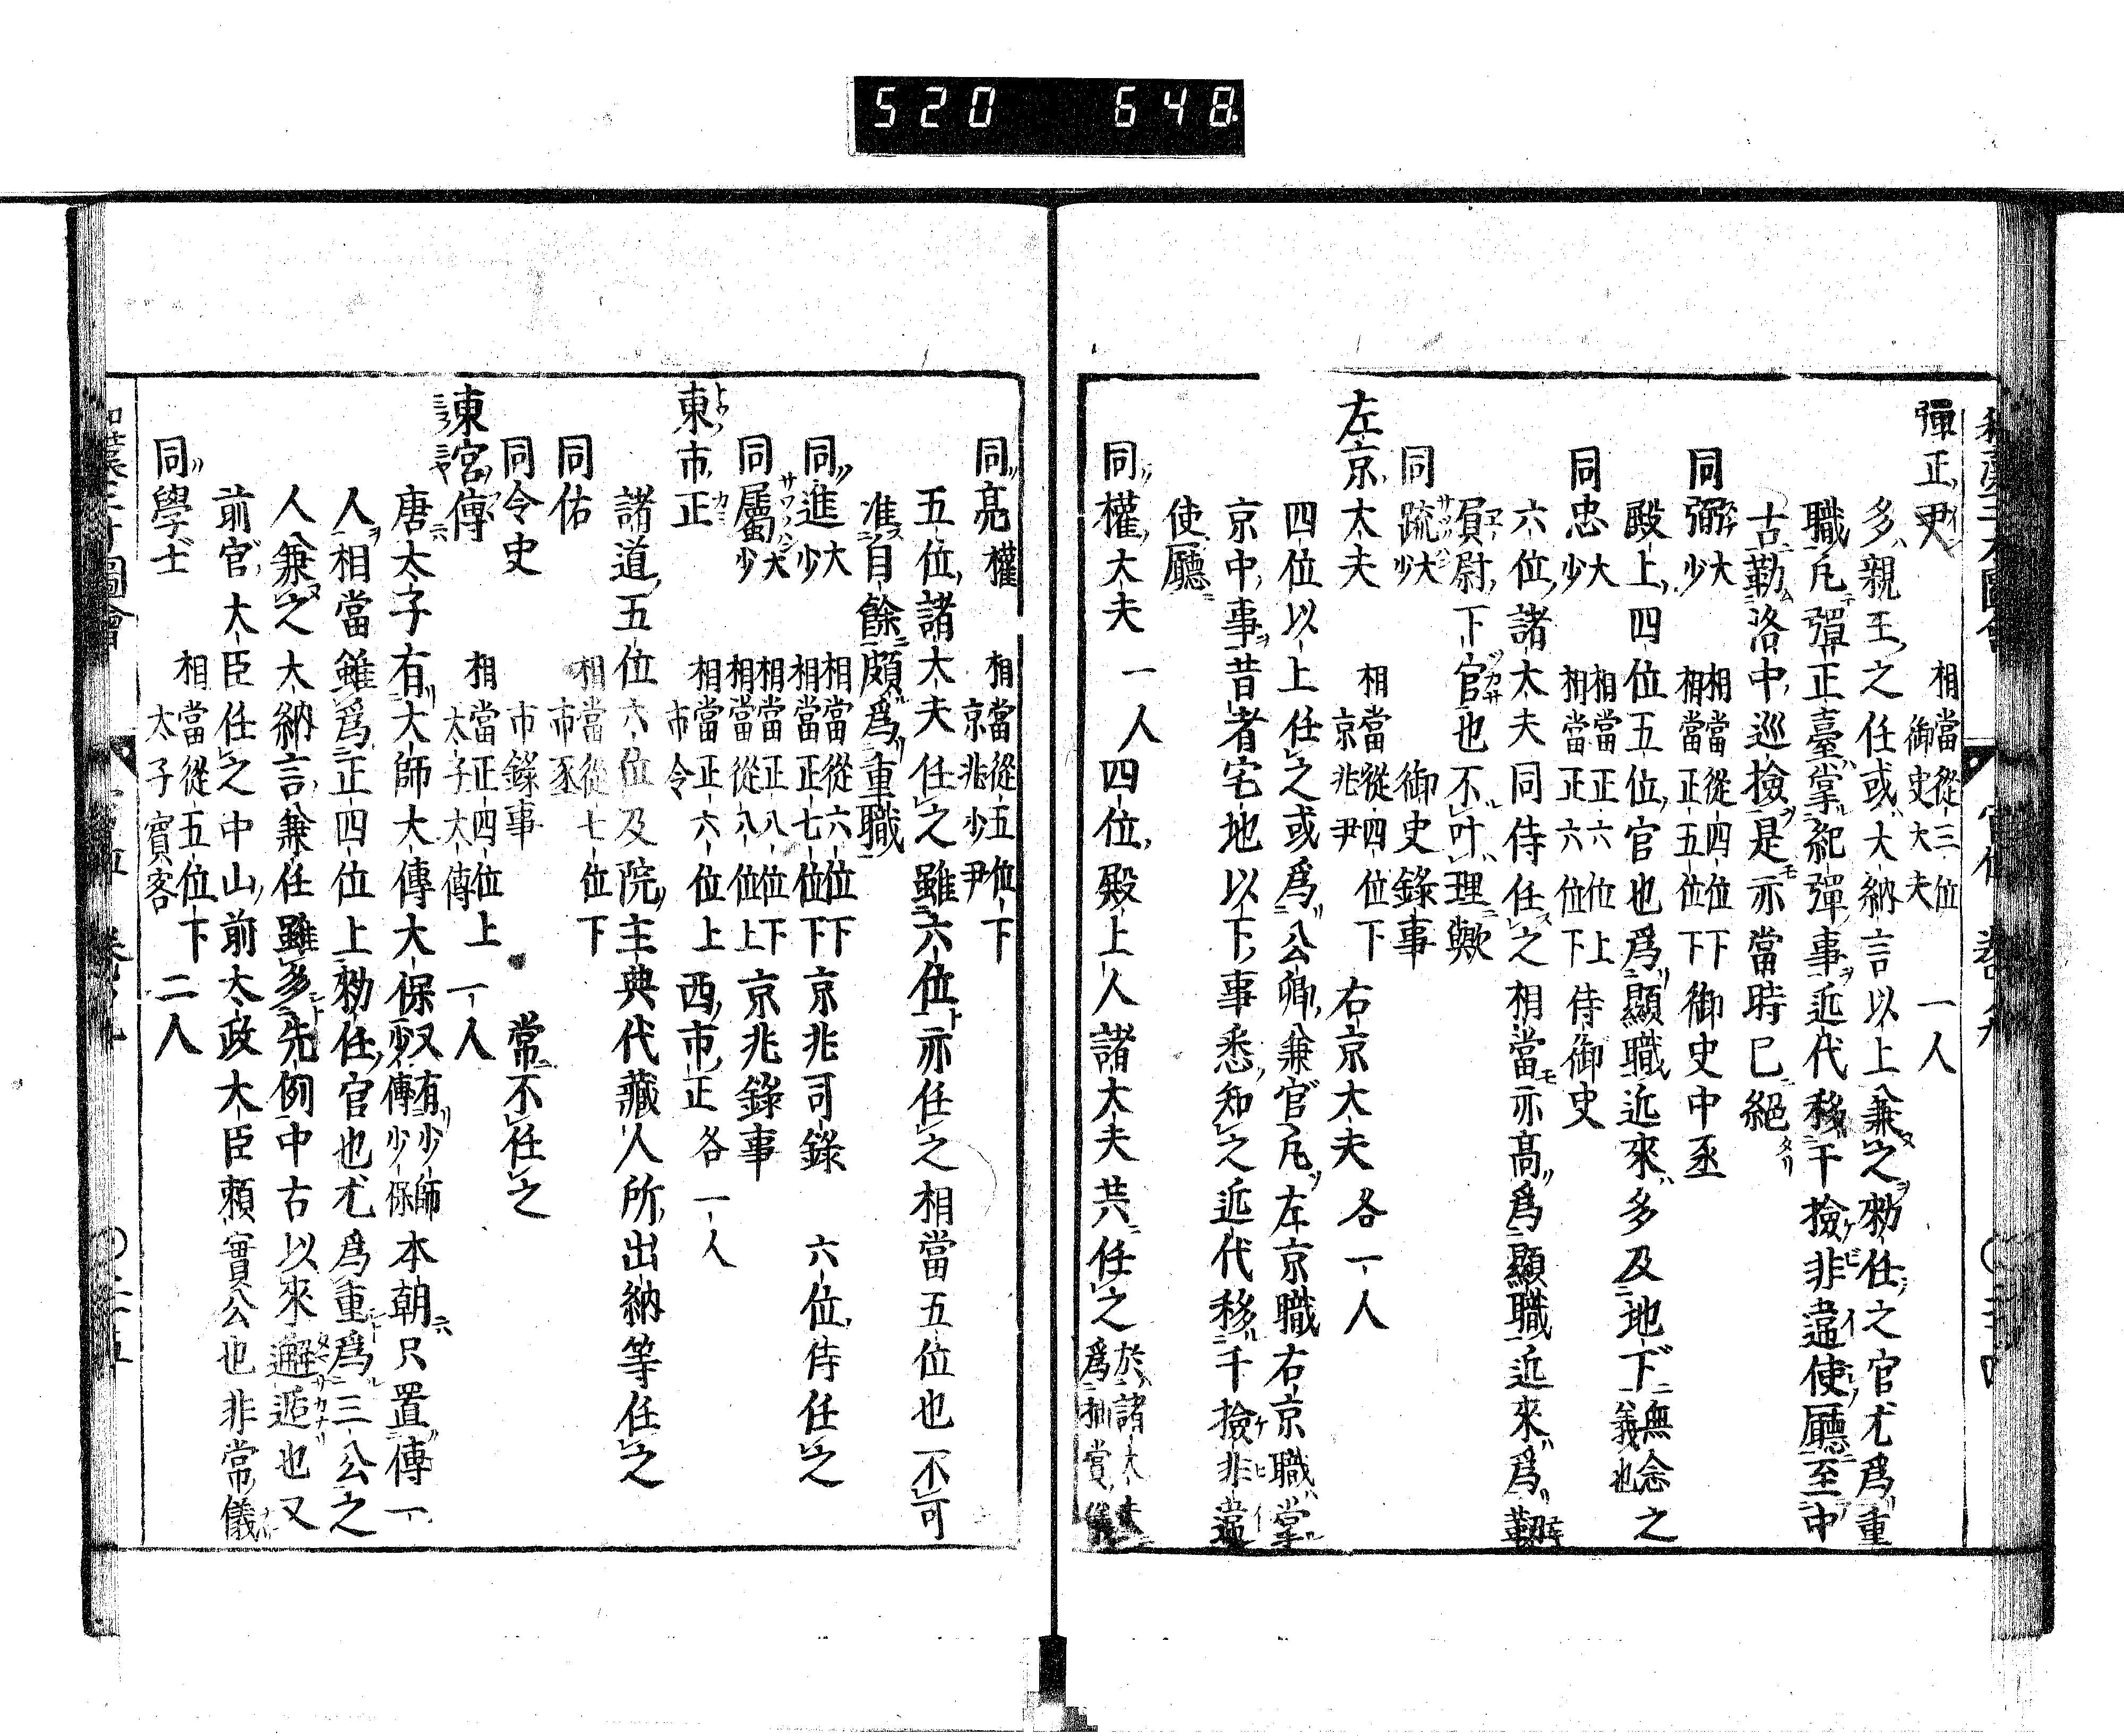 520 648
彈正尹 相當從三位 御史大夫 一人
多親王之任或大納言以上兼之勅任之官尤爲重
職凡彈正臺掌糺彈事近代移于撿非違使廳至中
古勒洛中巡撿是亦當時已絕
同弼 大少 相當從四位下 相當正五位下 御史中丞
殿上四位五位官也爲顯職近來多及地下無念之義也
同忠 大少 相當正六位上 相當正六位下 侍御史
六位諸大夫同侍任之相當亦高爲顯職近來爲靱
負尉下官也不叶理歟
同疏 大少 御史錄事
左京大夫 相當從四位下 京兆尹 右京大夫 各一人
四位以上任之或爲公卿兼官凡左京職右京職掌
京中事昔者宅地以下事悉知之近代移于撿非違
使廳
同權大夫 一人四位殿上人諸大夫共任之 於諸大夫爲抽賞
同亮 權 相當從五位下 京兆少尹
五位諸大夫任之雖六位亦任之相當五位也不可
准自餘頗爲重職
同進 大少 相當從六位下 相當正七位下 京兆司錄 六位侍任之
同屬 大少 相當正八位下 相當從八位上 京兆錄事
東市正 相當正六位上 市令 西市正各一人
諸道五位六位及院主典代藏人所出納等任之
同佑 相當從七位下 市丞
同令史 市錄事 常不任之
東宮傅 相當正四位上 太子大傅 一人
唐太子有大師大傅大保又有少師少傅少保本朝只置傅一
人相當雖爲正四位上勅任官也尤爲重爲三公之
人兼之大納言兼任雖多先例中古以來邂逅也又
前官大臣任之中山前太政大臣賴實公也非常儀
同學士 相當從五位下 太子賓客 二人